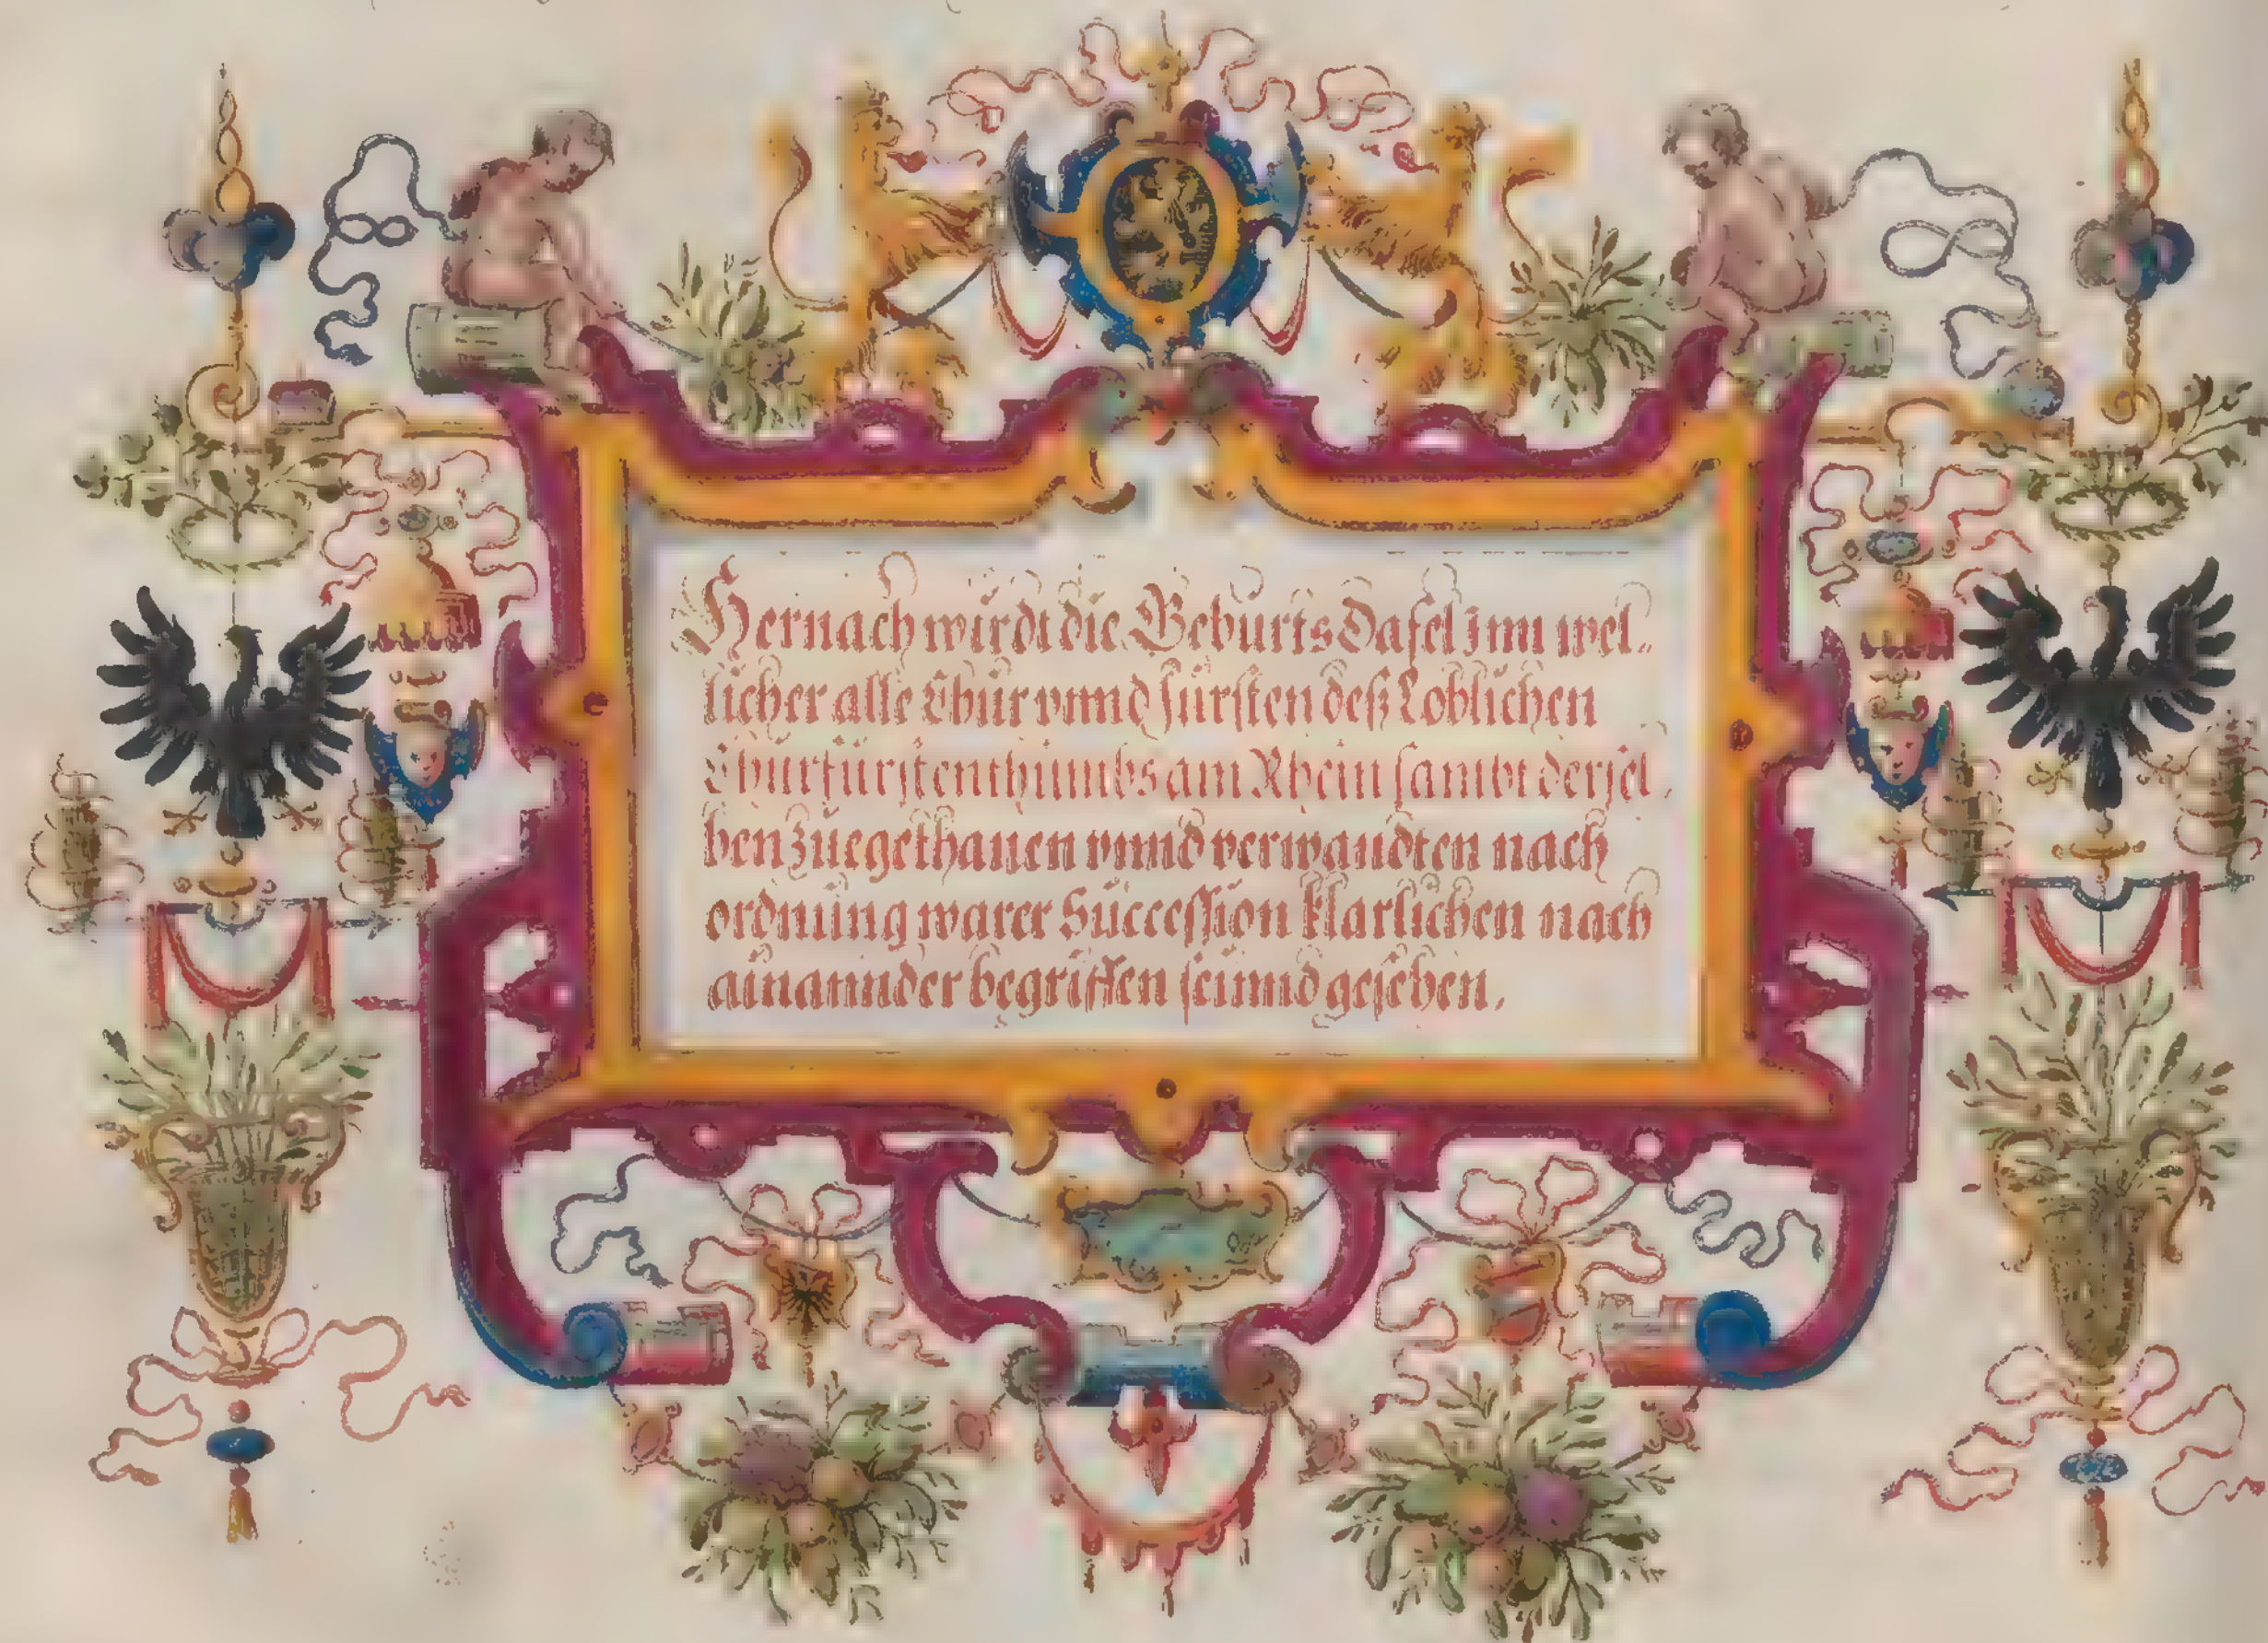 Hernach wirdt die Geburts Dafel Inn wel„
licher alle Chur vnnd fürsten deß Loblichen
Churfürstenthumbs am Rhein sambt dersel„
ben zuegethanen vnnd verwandten nach
ordnung warer Succession klarlichen nach
ainannder begriffen seinnd gesehen.